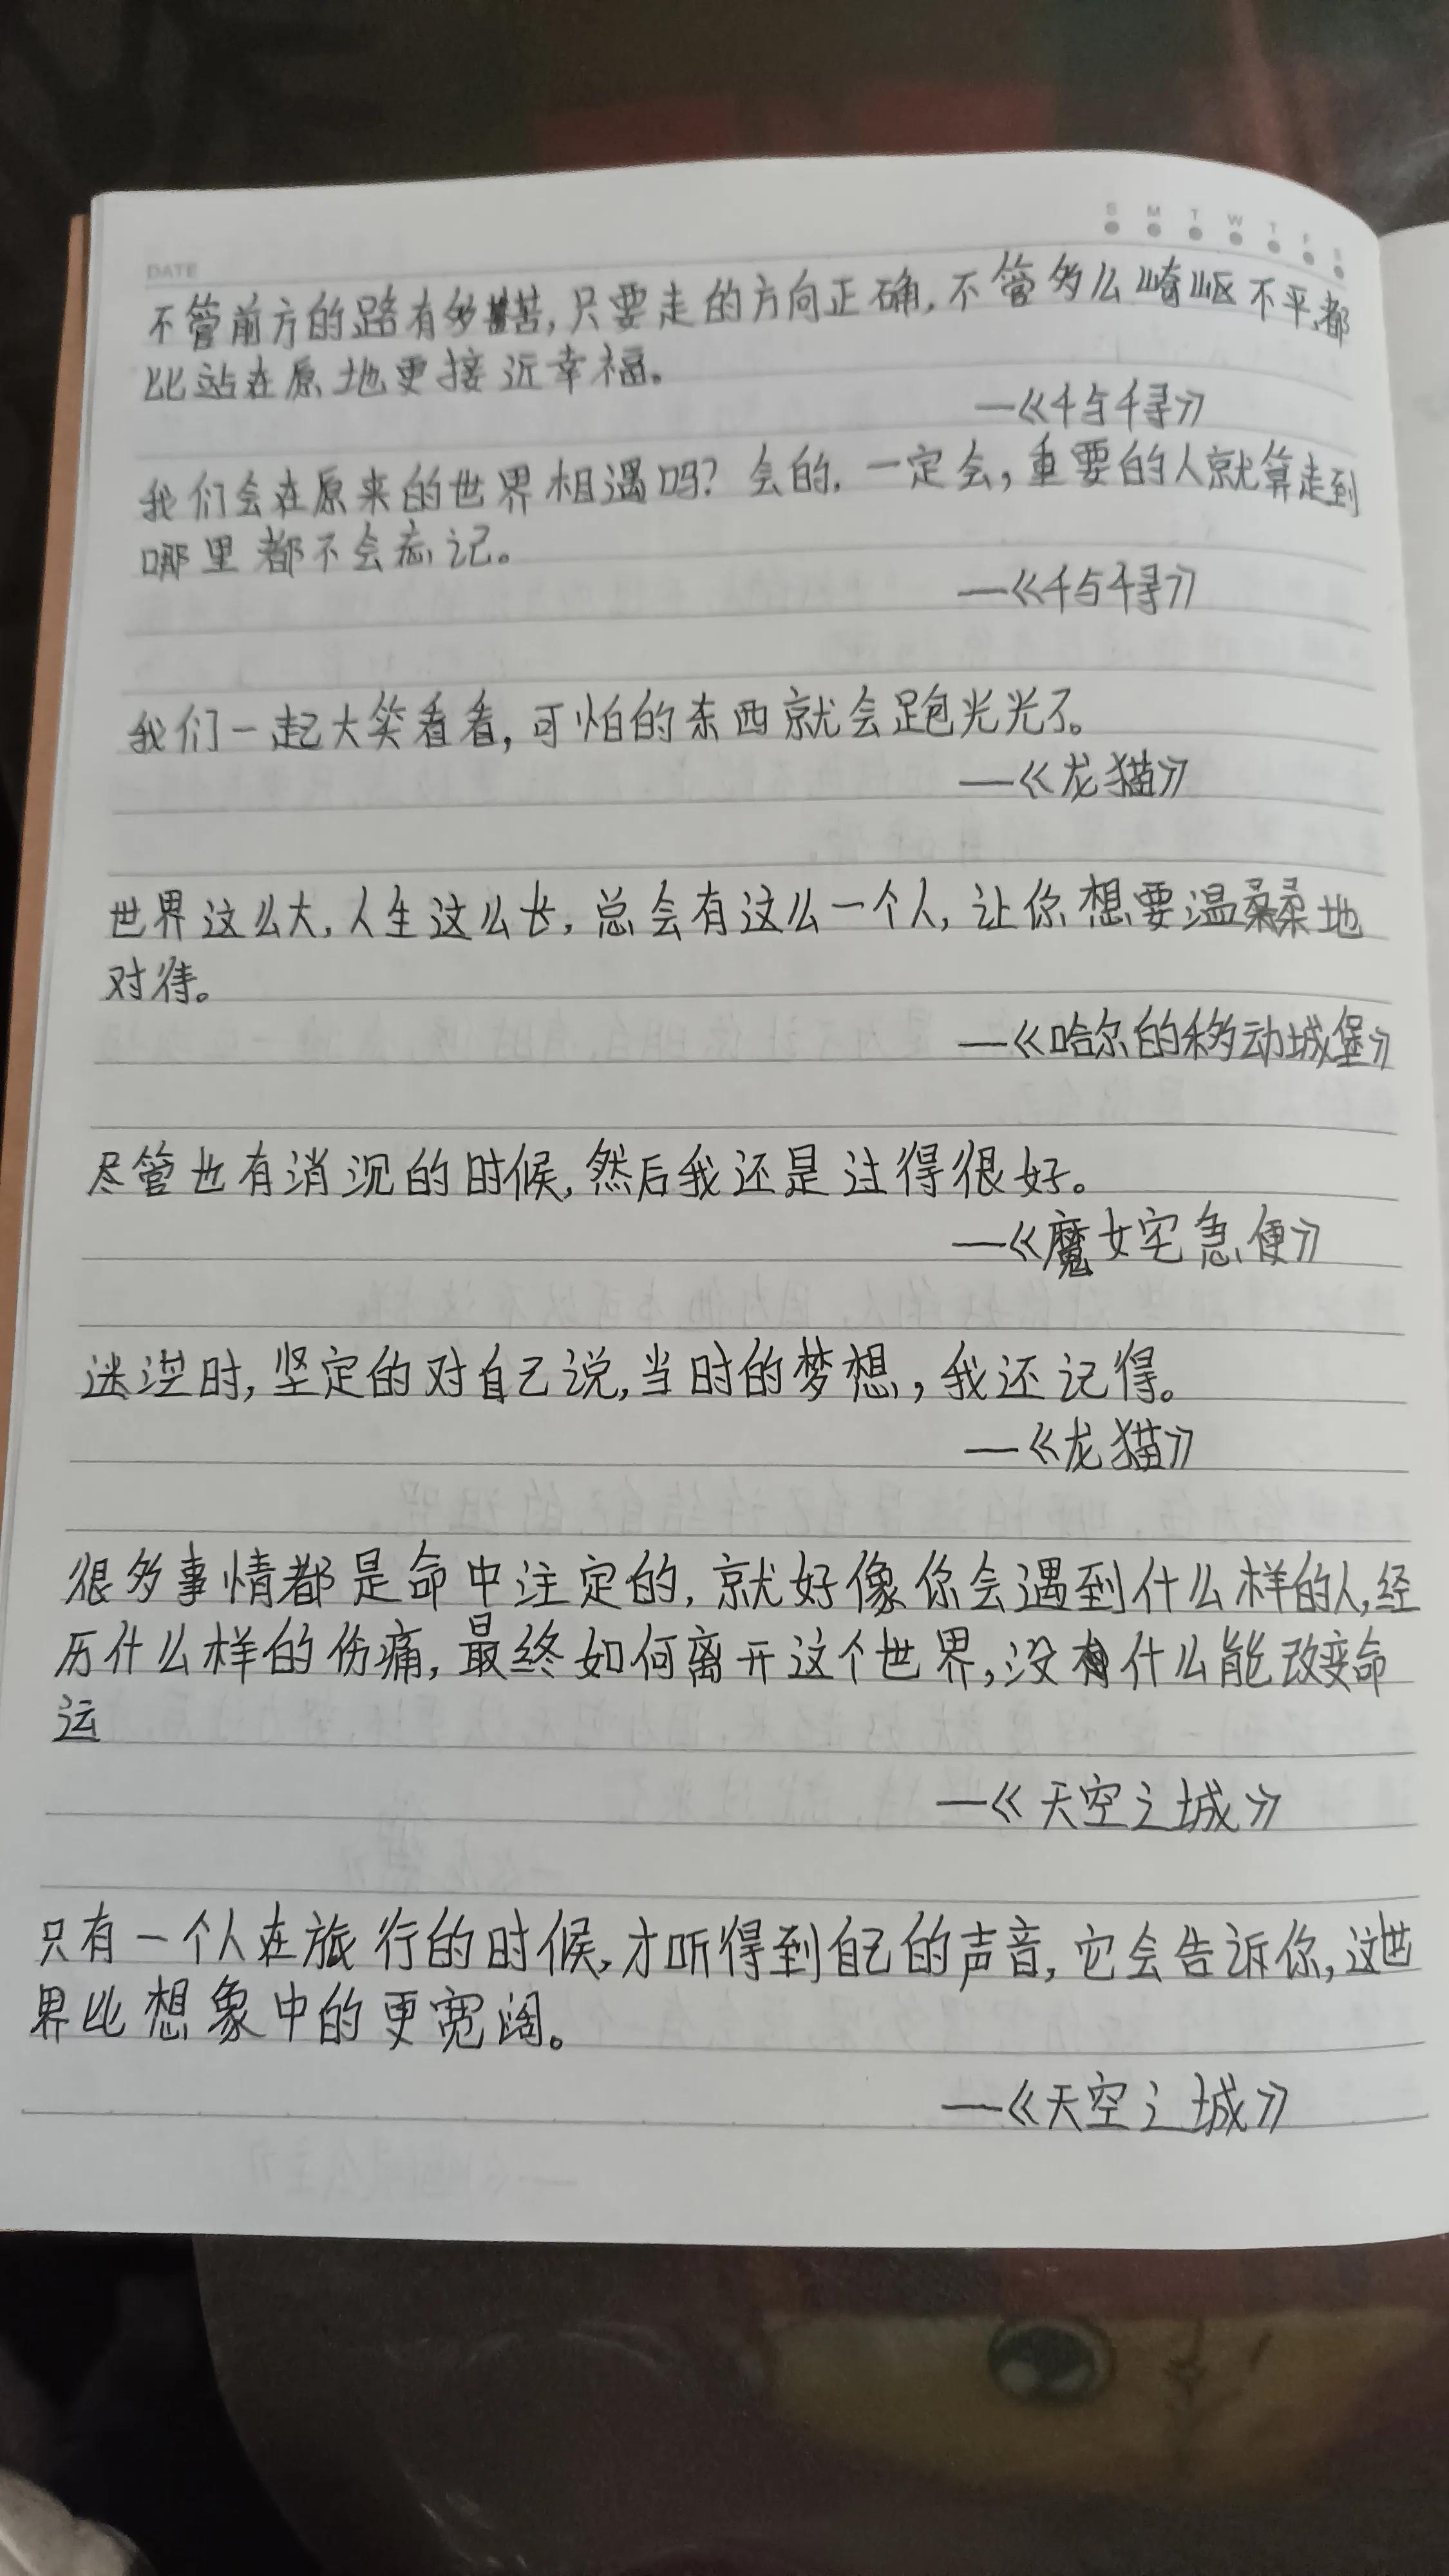 S M T W T F S
DATE
不管前方的路有多苦,只要走的方向正确,不管多么崎岖不平,都
比站在原地更接近幸福。
—《千与千寻》
我们会在原来的世界相遇吗?会的,一定会,重要的人就算走到
哪里都不会忘记。
—《千与千寻》
我们一起大笑看看,可怕的东西就会跑光光了。
—《龙猫》
世界这么大,人生这么长,总会有这么一个人,让你想要温柔地
对待。
—《哈尔的移动城堡》
尽管也有消沉的时候,然后我还是过得很好。
—《魔女宅急便》
迷茫时,坚定的对自己说,当时的梦想,我还记得。
—《龙猫》
很多事情都是命中注定的,就好像你会遇到什么样的人,经
历什么样的伤痛,最终如何离开这个世界,没有什么能改变命
运
—《天空之城》
只有一个人在旅行的时候,才听得到自己的声音,它会告诉你,这世
界比想象中的更宽阔。
—《天空之城》